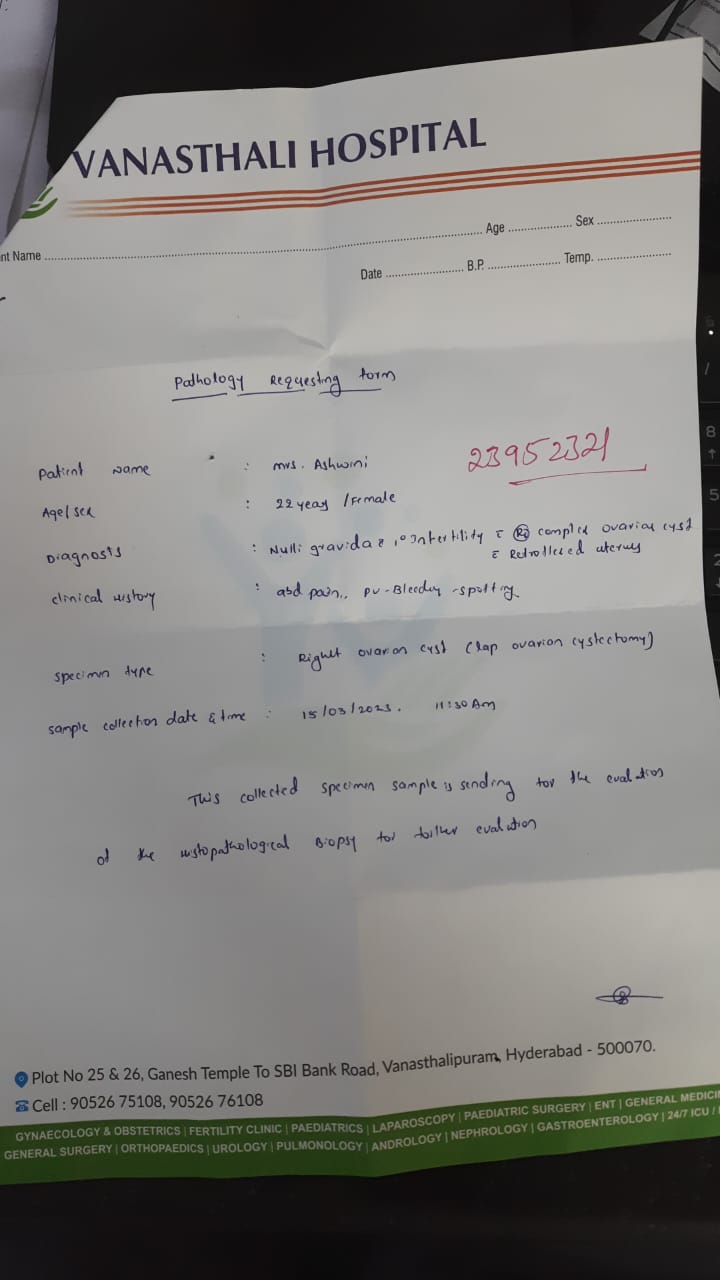 VANASTHALI HOSPITAL
nt Name ........ Age ........ Sex ........
Date ........ B.P. ........ Temp. ........
Pathology Requesting form
Patient Name : mrs. Ashwini
23952321
Age/sex : 22 years /Female
Diagnosis : Nulli gravida c 1° Infertility c (Rt) complex ovarian cyst
c Retroflexed uterus
clinical History : abd pain, PV-Bleeding -spotting
specimen type : Right ovarian cyst (lap ovarian cystectomy)
sample collection date & time : 15/03/2023. 11:30 Am
This collected specimen sample is sending for the evaluation
of the histopathological Biopsy for further evalution
Plot No 25 & 26, Ganesh Temple To SBI Bank Road, Vanasthalipuram, Hyderabad - 500070.
Cell : 90526 75108, 90526 76108
GYNAECOLOGY & OBSTETRICS | FERTILITY CLINIC | PAEDIATRICS | LAPAROSCOPY | PAEDIATRIC SURGERY | ENT | GENERAL MEDICIN
GENERAL SURGERY | ORTHOPAEDICS | UROLOGY | PULMONOLOGY | ANDROLOGY | NEPHROLOGY | GASTROENTEROLOGY | 24/7 ICU /